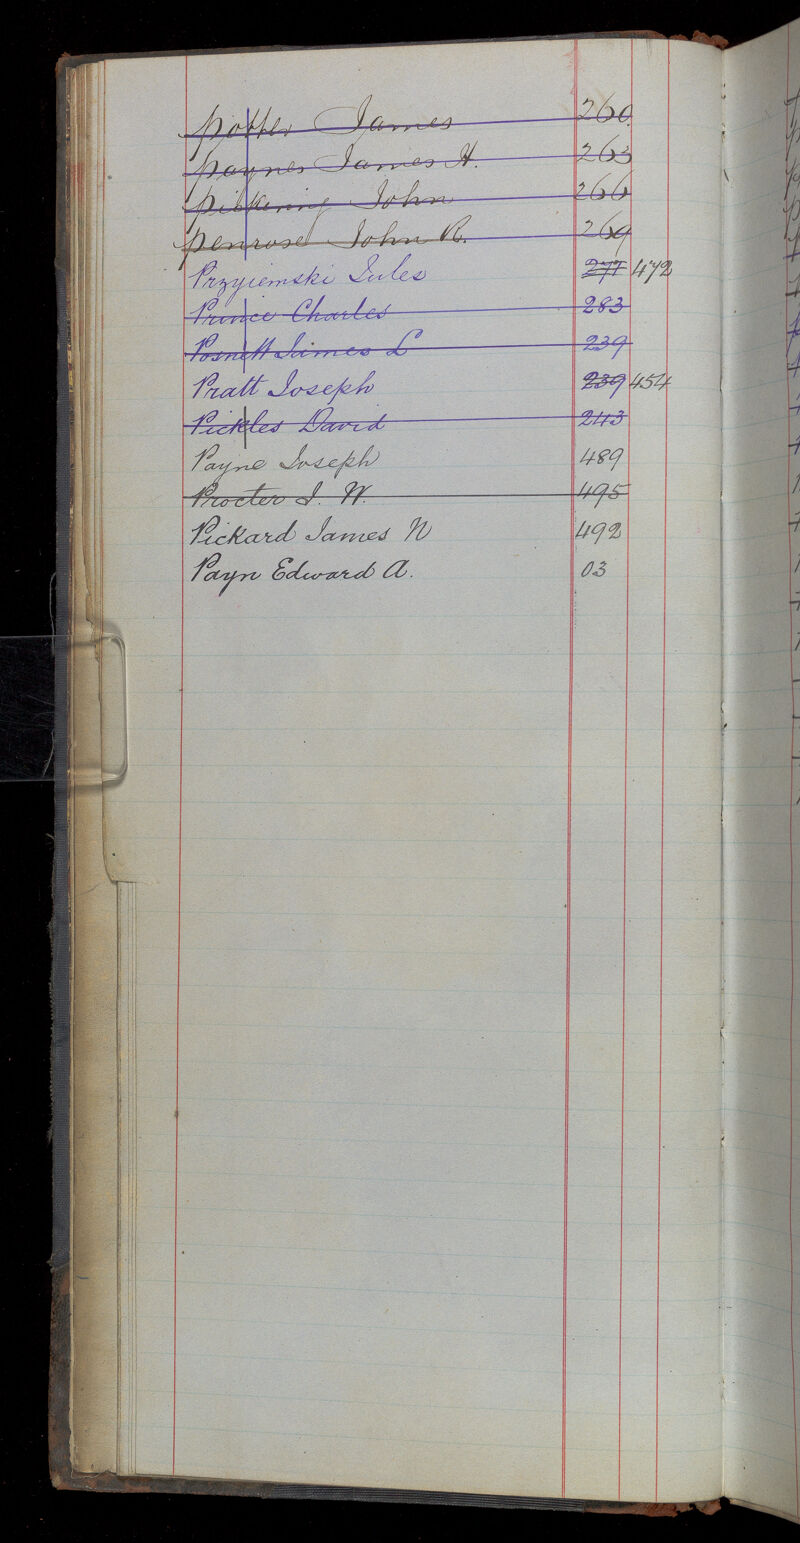 Potter James 260
Paynes James H. 263
Pickering John 266
Penrose John R. 269
Przyiemski Jules 277 472
Prince Charles 283
Posnett James L 239
Pratt Joseph 239 454
Pickles David 243
Payne Joseph 489
Procter J. W. 495
Pickard James N 492
Payn Edward A. 03